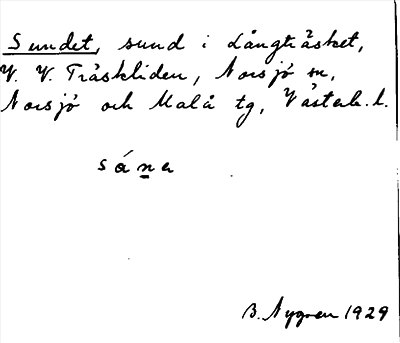 Sundet, sund i Långträsket,
V. V. Träskliden, Norsjö sn,
Norsjö och Malå tg, Västerb. l.
sáne
B. Nygren 1929